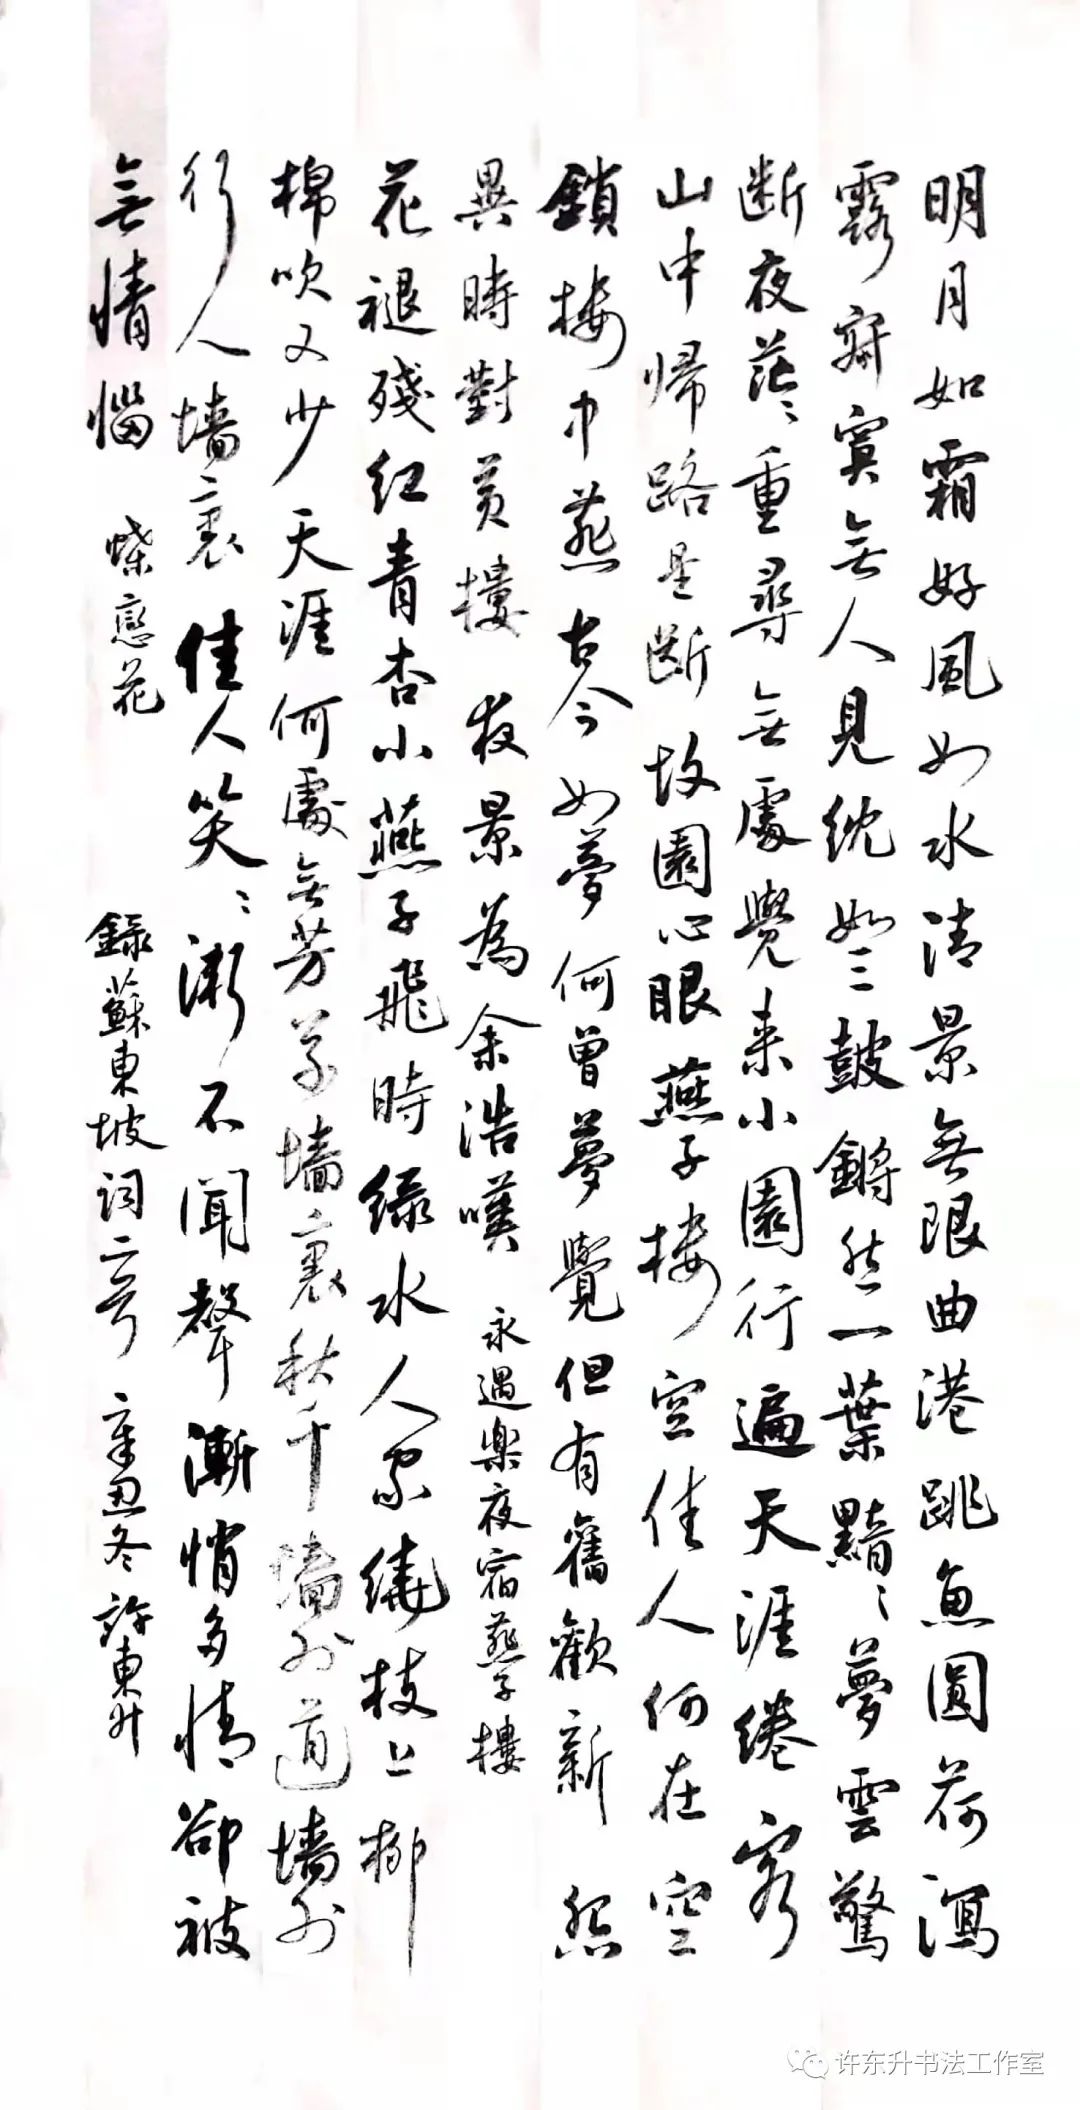 明月如霜好風如水清景無限曲港跳魚圓荷瀉
露寂寞無人見紞如三鼓鏘然一葉黯〻夢雲驚
断夜茫〻重尋無處覺来小園行遍天涯倦客
山中帰路望断故園心眼燕子楼空佳人何在空
鎖楼中燕古今如夢何曾夢覺但有舊歡新怨
異時對黄樓夜景為余浩嘆 永遇樂夜宿燕子樓
花褪残红青杏小燕子飛時绿水人家繞枝上柳
棉吹又少天涯何處無芳草墙裏秋千墙外道墙外
行人墙裏佳人笑〻渐不聞聲漸悄多情卻被
無情惱 蝶戀花 録蘇東坡词二首 辛丑冬許東升
许东升书法工作室